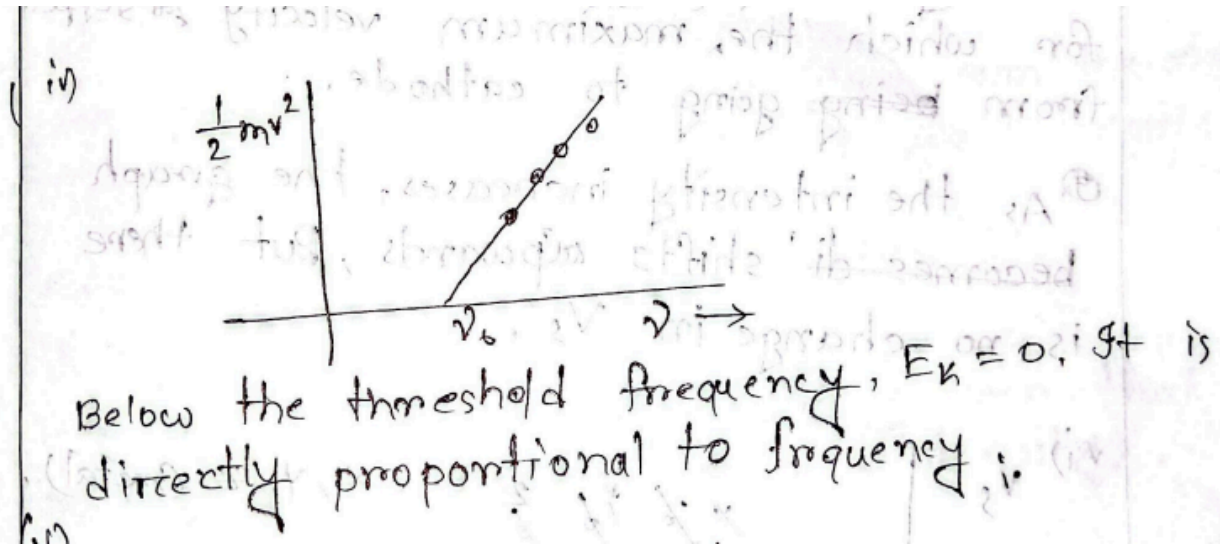 iv)
1/2 mv²
ν₀ ν →
Below the threshold frequency, E_K = 0. It is
directly proportional to frquency.